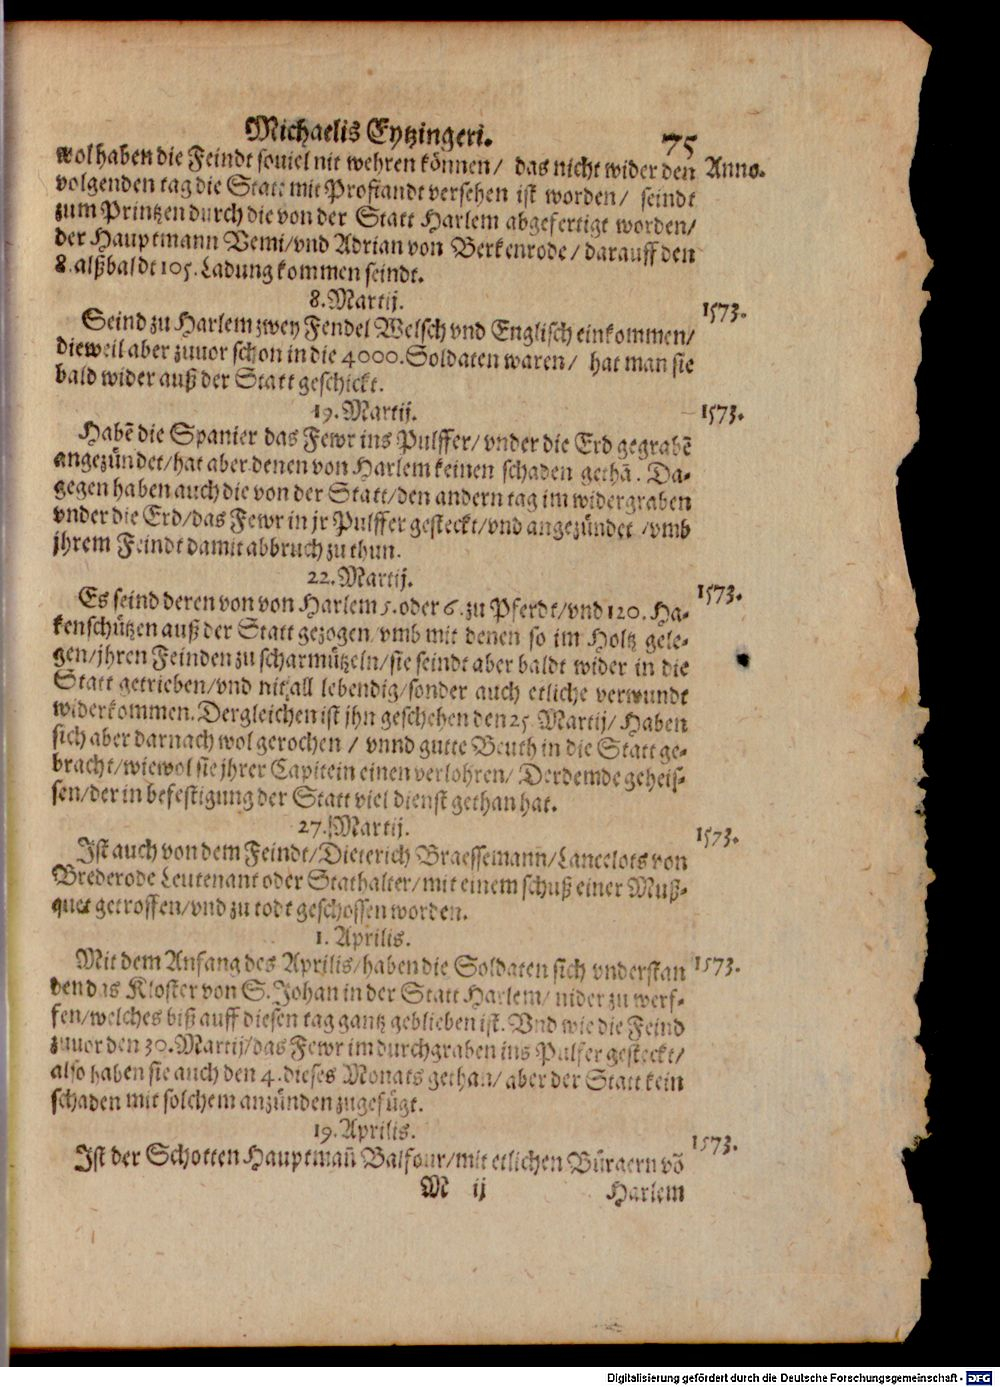 Michaelis Eytzingeri. 75
wol haben die Feindt souiel nit wehren können/ das nicht wider den Anno.
volgenden tag die Statt mit Profiandt versehen ist worden/ seindt
zum Printzen durch die von der Statt Harlem abgefertigt worden/
der Hauptmann Vemi/vnd Adrian von Berkenrode/darauff den
8.alßbaldt 105.Ladung kommen seindt.
8.Martij.
Seind zu Harlem zwey Fendel Welsch vnd Englisch einkommen/ 1573.
dieweil aber zuuor schon in die 4000.Soldaten waren/ hat man sie
bald wider auß der Statt geschickt.
19.Martij. 1573.
Habẽ die Spanier das Fewr ins Pulffer/vnder die Erd gegrabẽ
angezündet/hat aber denen von Harlem keinen schaden gethã. Da-
gegen haben auch die von der Statt/den andern tag im widergraben
vnder die Erd/das Fewr in jr Pulffer gesteckt/vnd angezündet /vmb
jhrem Feindt damit abbruch zu thun.
22.Martij.
Es seind deren von von Harlem 5.oder 6.zu Pferdt/vnd 120.Ha- 1573.
kenschützen auß der Statt gezogen/vmb mit denen so im Holtz gele-
gen/jhren Feinden zu scharmützeln/sie seindt aber baldt wider in die
Statt getrieben/vnd nit all lebendig/sonder auch etliche verwundt
widerkommen.Dergleichen ist jhn geschehen den 25.Martij/Haben
sich aber darnach wol gerochen / vnnd gutte Beuth in die Statt ge-
bracht/wiewol sie jhrer Capitein einen verlohren/ Derdemde geheis-
sen/der in befestigung der Statt viel dienst gethan hat.
27.Martij.
Ist auch von dem Feindt/Dieterich Braessemann/Lancelots von 1573.
Brederode Leutenant oder Stathalter/mit einem schuß einer Muß-
quet getroffen/vnd zu todt geschossen worden.
1. Aprilis.
Mit dem Anfang des Aprilis/haben die Soldaten sich vnderstan 1573.
den das Kloster von S.Johan in der Statt Harlem/ nider zu werf-
fen/welches biß auff diesen tag gantz geblieben ist. Vnd wie die Feind
zuuor den 30.Martij/das Fewr im durchgraben ins Pulfer gesteckt/
also haben sie auch den 4.dieses Monats gethan/ aber der Statt kein
schaden mit solchem anzünden zugefügt.
19.Aprilis.
Ist der Schotten Hauptmañ Balfour/mit etlichen Bürgern võ 1573.
M ij Harlem
Digitalisierung gefördert durch die Deutsche Forschungsgemeinschaft - DFG